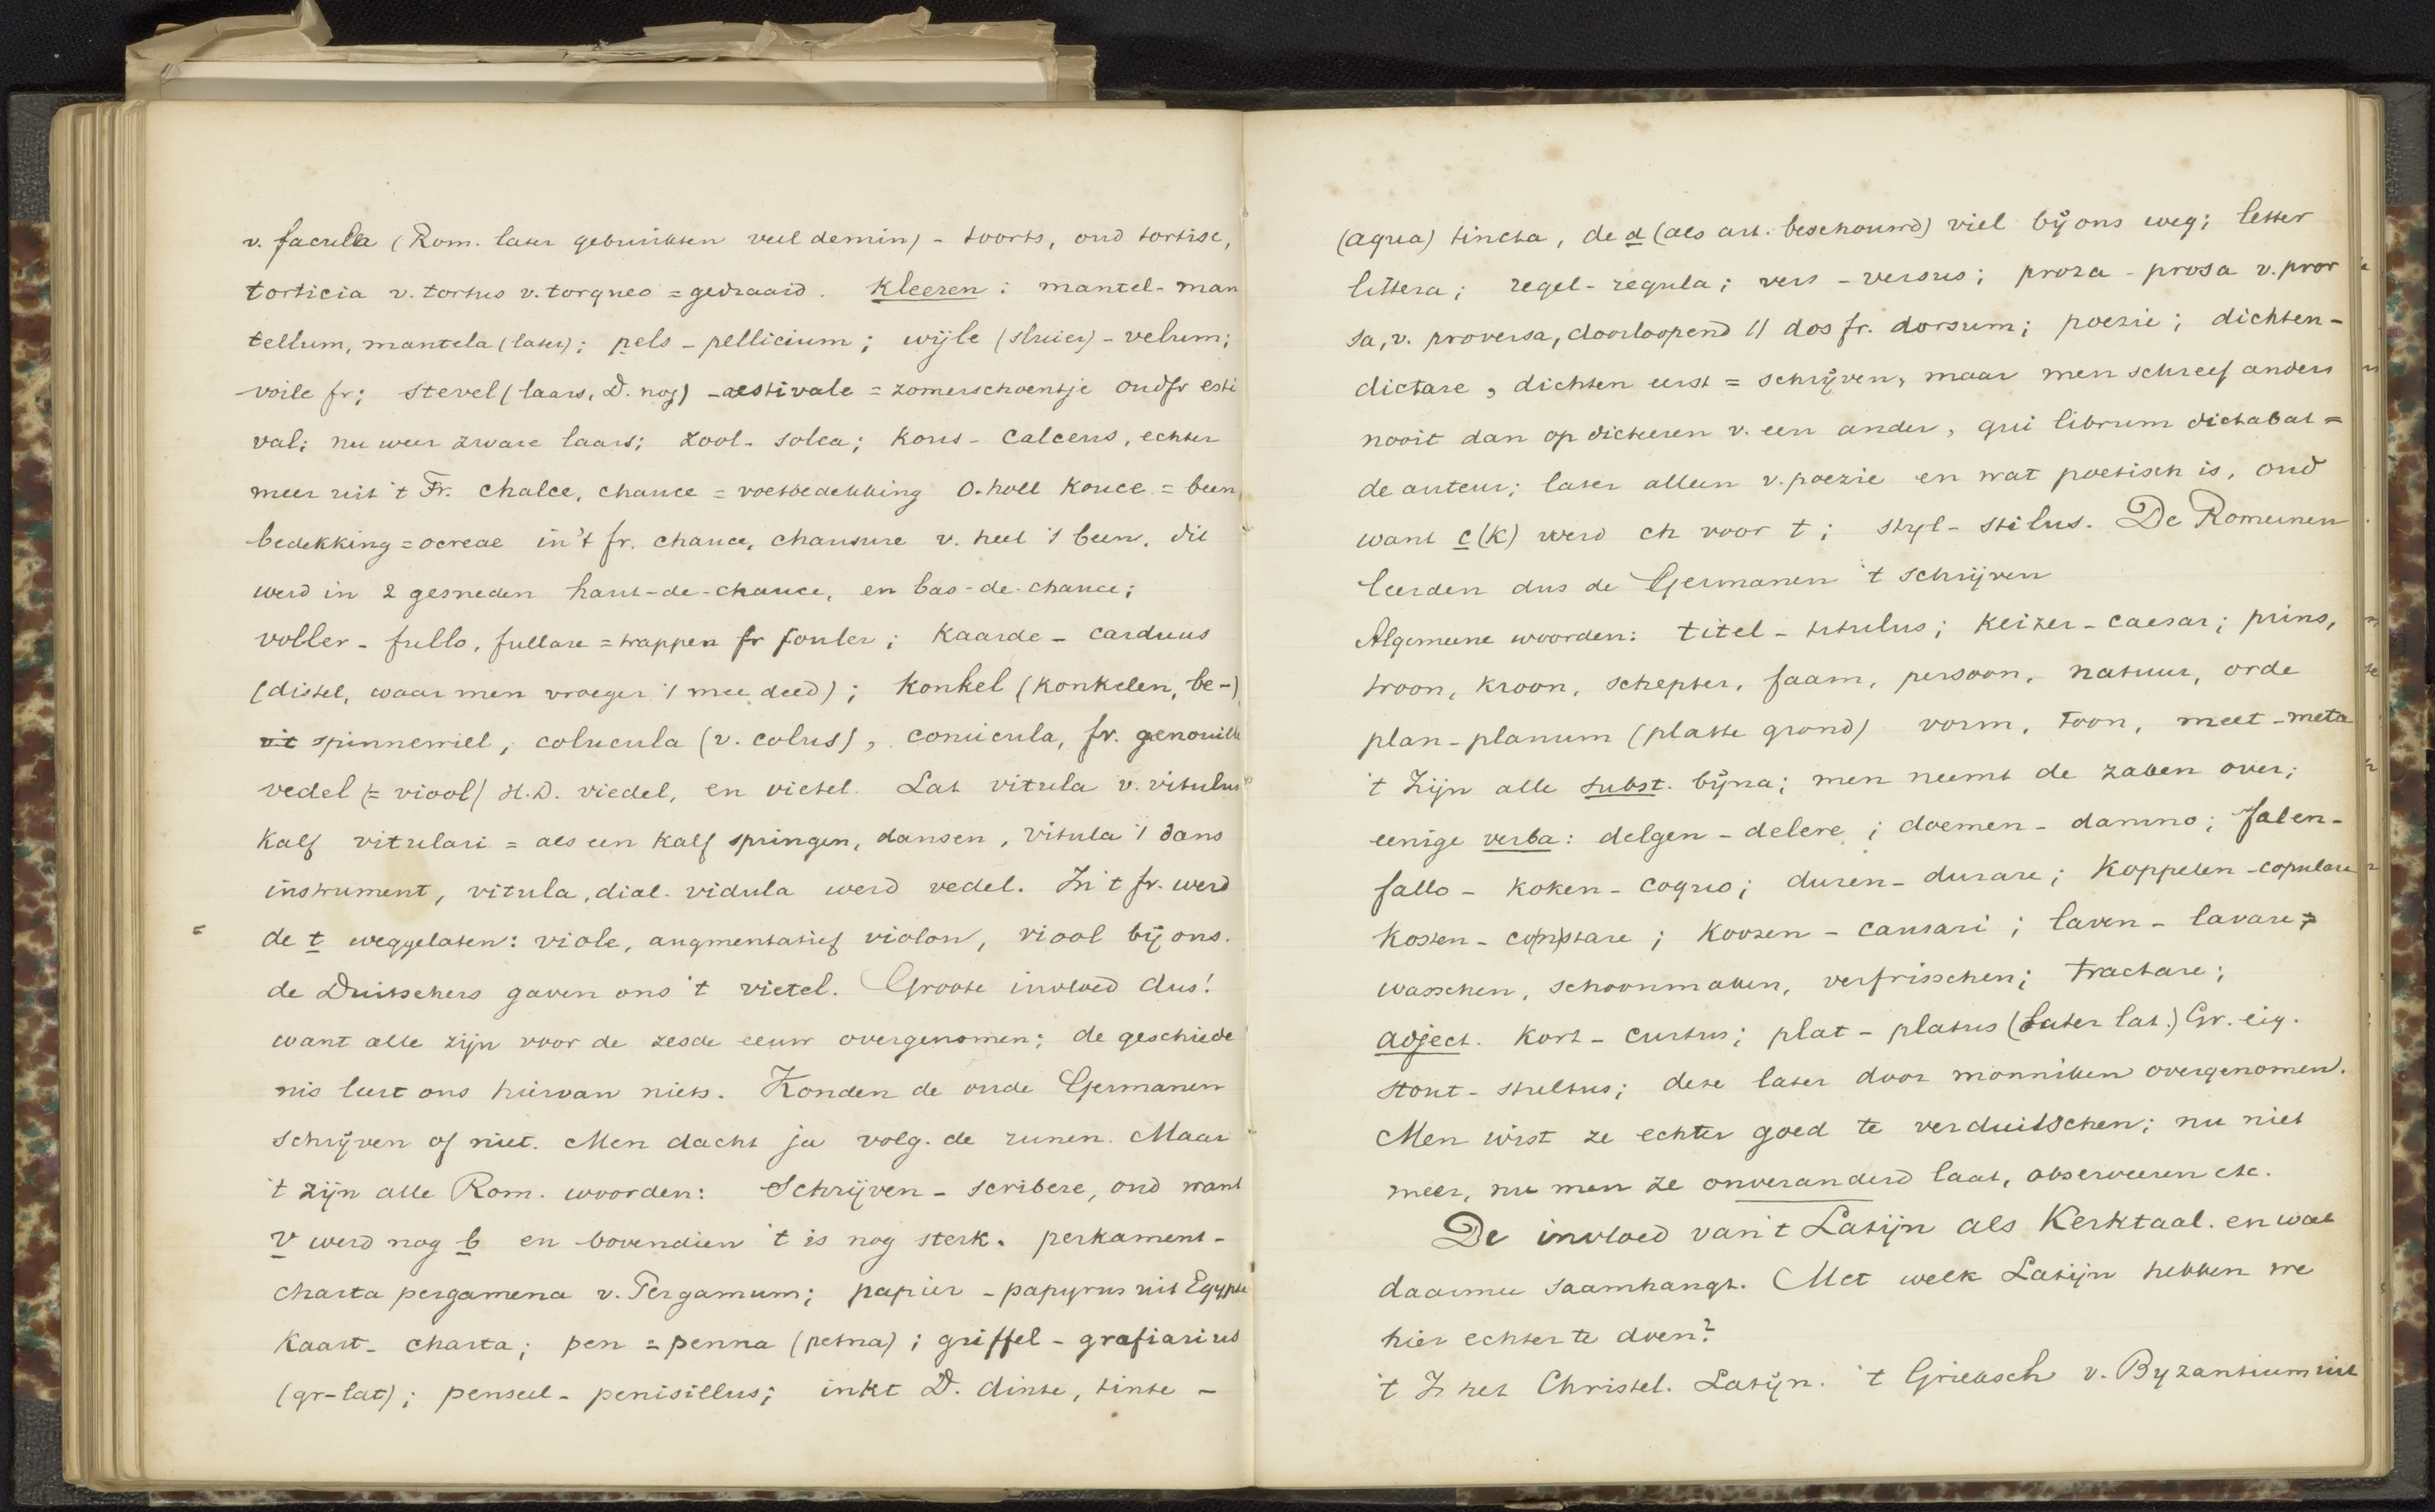 v. facula (Rom. later gebruikten veel demin) - toorts, oud tortise,
torticia v. tortus v. torqueo = gedraaid. Kleeren: mantel - man
tellum, mantela (later); pels - pellicium; wijle (sluier) - velum;
voile fr; stevel (laars, D. nog) - aestivale = zomerschoentje oudfr esti
val; nu weer zware laars; zool - solea; kous - calceus, echter
meer uit 't Fr. chalce, chauce = voetbedekking O. holl kouce = been
bedekking = ocreae in 't fr. chauce, chausure v. heel 't been, dit
werd in 2 gesneden haut-de-chauce, en bas-de-chauce;
voller - fullo, fullare = trappen fr fouler; kaarde - carduus
(distel, waar men vroeger 't mee deed); konkel (konkelen, be-)
uit spinnewiel, colucula (v. colus), conucula, fr. genouille
vedel (= viool) H.D. viedel, en vietel. Lat vitula v. vitulus
kalf vitulari = als een kalf springen, dansen, vitula 't dans
instrument, vitula, dial. vidula werd vedel. In 't fr. werd
de t weggelaten: viole, augmentatief violon, viool bij ons.
de Duitschers gaven ons 't vietel. Groote invloed dus!
want alle zijn voor de zesde eeuw overgenomen; de geschiede
nis leert ons hiervan niets. Konden de oude Germanen
schrijven of niet. Men dacht ja volg. de runen. Maar
't zijn alle Rom. woorden: Schrijven - scribere, oud want
v werd nog b en bovendien 't is nog sterk. perkament -
charta pergamena v. Pergamum; papier - papyrus uit Egypte
kaart - charta; pen = penna (petna); griffel - grafiarius
(gr-lat); penseel - penisillus; inkt D. dinte, tinte -
(aqua) tincta, de a (als art. beschouwd) viel bij ons weg; letter
littera; regel - regula; vers - versus; proza - prosa v. pror
sa, v. proversa, doorloopend // dos fr. dorsum; poezie; dichten -
dictare, dichten eerst = schrijven, maar men schreef anders
nooit dan op dicteeren v. een ander, qui librum dictabat =
de auteur; later alleen v. poezie en wat poetisch is, oud
want c (k) werd ch voor t; styl - stilus. De Romeinen
leerden dus de Germanen 't schrijven
Algemeene woorden: titel - titulus; keizer - caesar; prins,
troon, kroon, schepter, faam, persoon, natuur, orde
plan - planum (platte grond) vorm, toon, meet - meta
't Zijn alle subst. bijna; men neemt de zaken over;
eenige verba: delgen - delere; doemen - damno; falen -
fallo - koken - coquo; duren - durare; koppelen - copulare
kosten - co(n)stare; koozen - causari; laven - lavare =
wasschen, schoonmaken, verfrisschen; tractare;
adject. kort - curtus; plat - platus (later lat.) Gr. eig.
stout - stultus; deze later door monniken overgenomen.
Men wist ze echter goed te verduitschen; nu niet
meer, nu men ze onveranderd laat, observeeren etc.
De invloed van 't Latijn als Kerktaal. en wat
daarmee saamhangt. Met welk Latijn hebben we
hier echter te doen?
't Is het Christel. Latijn. 't Grieksch v. Byzantium uit